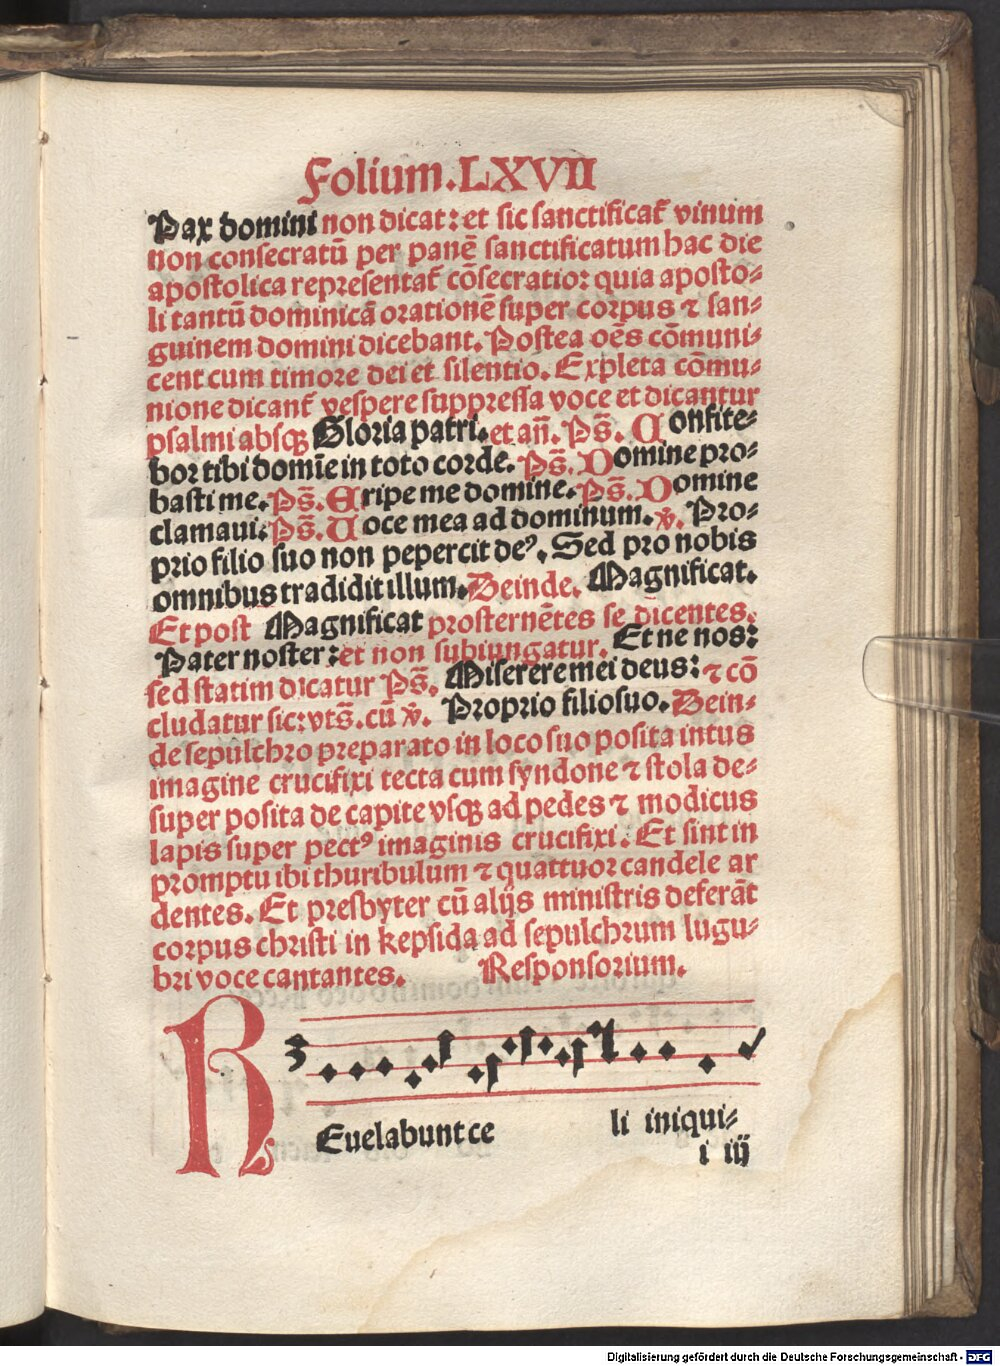 Folium.LXVII
Pax domini non dicat: et sic sanctificat᷑ vinum
non consecratū per panē sanctificatum hac die
apostolica representat᷑ cōsecratio: quia aposto⸗
li tantū dominicā orationē super corpus ⁊ san⸗
guinem domini dicebant. Postea oēs cōmuni⸗
cent cum timore dei et silentio. Expleta cōmu⸗
nione dicant᷑ vespere suppressa voce et dicantur
psalmi absqꝫ Gloria patri. et añ. Ps̄. Confite⸗
bor tibi domīe in toto corde. Ps̄. Domine pro⸗
basti me. Ps̄. Eripe me domine. Ps̄. Domine
clamaui. Ps̄. Uoce mea ad dominum. ℣. Pro⸗
prio filio suo non pepercit deꝰ. Sed pro nobis
omnibus tradidit illum. Deinde. Magnificat.
Et post Magnificat prosternētes se dicentes.
Pater noster: et non subiungatur. Et ne nos:
sed statim dicatur Ps̄. Miserere mei deus: ⁊ cō
cludatur sic: vts̄. cū ℣. Proprio filio suo. Dein⸗
de sepulchro preparato in loco suo posita intus
imagine crucifixi tecta cum syndone ⁊ stola de⸗
super posita de capite vsqꝫ ad pedes ⁊ modicus
lapis super pectꝰ imaginis crucifixi. Et sint in
promptu ibi thuribulum ⁊ quattuor candele ar
dentes. Et presbyter cū alijs ministris deferāt
corpus christi in kepsida ad sepulchrum lugu⸗
bri voce cantantes. Responsorium.
REuelabunt ce li iniqui⸗
i iij
Digitalisierung gefördert durch die Deutsche Forschungsgemeinschaft - DFG